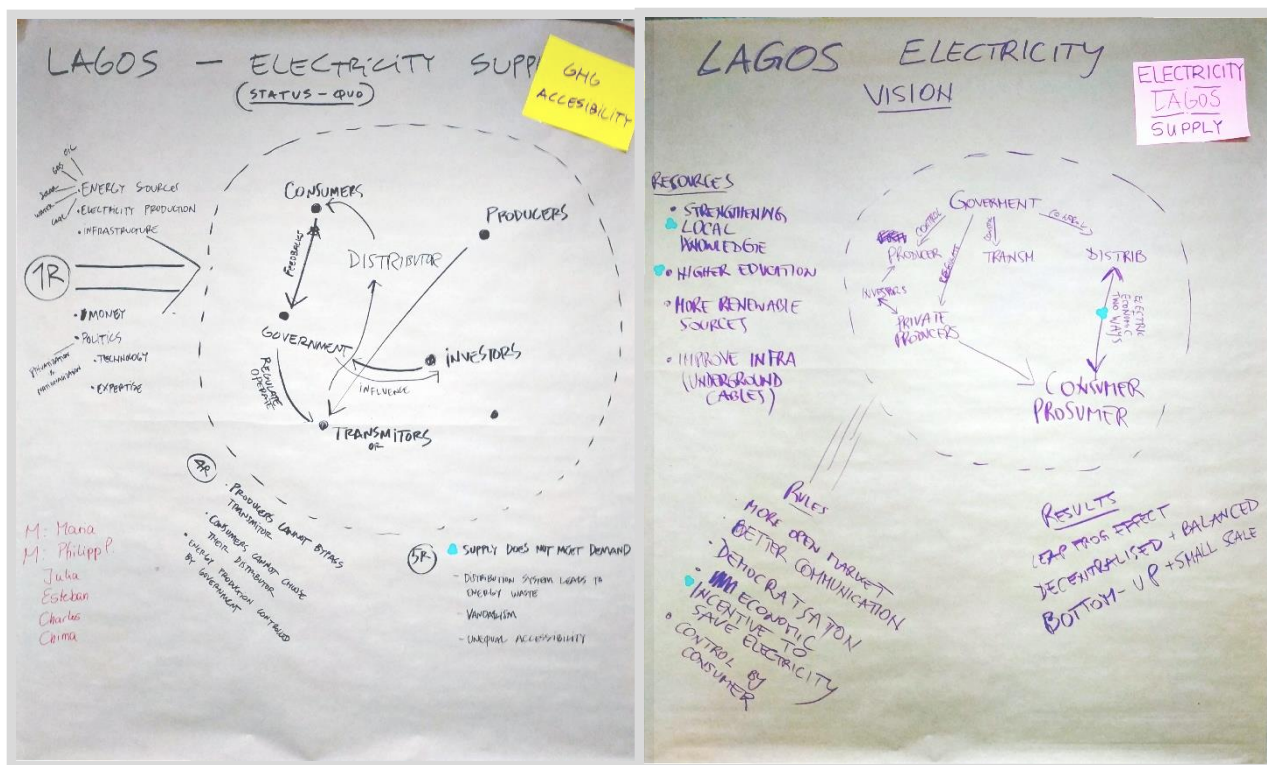 LAGOS — ELECTRICITY SUPPL
(STATUS-QUO)
GHG
ACCESIBILITY
OIL
GAS
SOLAR
WATER
COAL
• ENERGY SOURCES
• ELECTRICITY PRODUCTION
• INFRASTRUCTURE
1R
• MONEY
• POLITICS
PRIVATISATION
&
NATIONALISATION
• TECHNOLOGY
• EXPERTISE
CONSUMERS
PRODUCERS
FEEDBACKS
DISTRIBUTOR
GOVERNMENT
INVESTORS
INFLUENCE
REGULATE
OPERATE
TRANSMITORS
OR
4R
• PRODUCERS CANNOT BYPASS
TRANSMITOR
• CONSUMERS CANNOT CHOOSE
THEIR DISTRIBUTOR
• ENERGY PRODUCTION CONTROLLED
BY GOVERNMENT
5R
SUPPLY DOES NOT MEET DEMAND
- DISTRIBUTION SYSTEM LEADS TO
ENERGY WASTE
- VANDALISM
- UNEQUAL ACCESSIBILITY
M: Maria
M: Philipp P.
Julia
Esteban
Charles
Chima
LAGOS ELECTRICITY
VISION
ELECTRICITY
LAGOS
SUPPLY
RESOURCES
• STRENGTHENING
LOCAL
KNOWLEDGE
• HIGHER EDUCATION
• MORE RENEWABLE
SOURCES
• IMPROVE INFRA
(UNDERGROUND
CABLES)
GOVERMENT
CONTROL
CONTROL
CONTROL
PRODUCER
REGULATE
TRANSM
DISTRIB
INVESTORS
PRIVATE
PRODUCERS
ELECTRIC
ECONOMIC
TWO WAYS
CONSUMER
PROSUMER
RULES
• MORE OPEN MARKET
• BETTER COMMUNICATION
• DEMOCRATSATON
• ECONOMIC
INCENTIVE TO
SAVE ELECTRICITY
• CONTROL BY
CONSUMER
RESULTS
LEAP FROG EFFECT
DECENTRALISED + BALANCED
BOTTOM-UP + SMALL SCALE